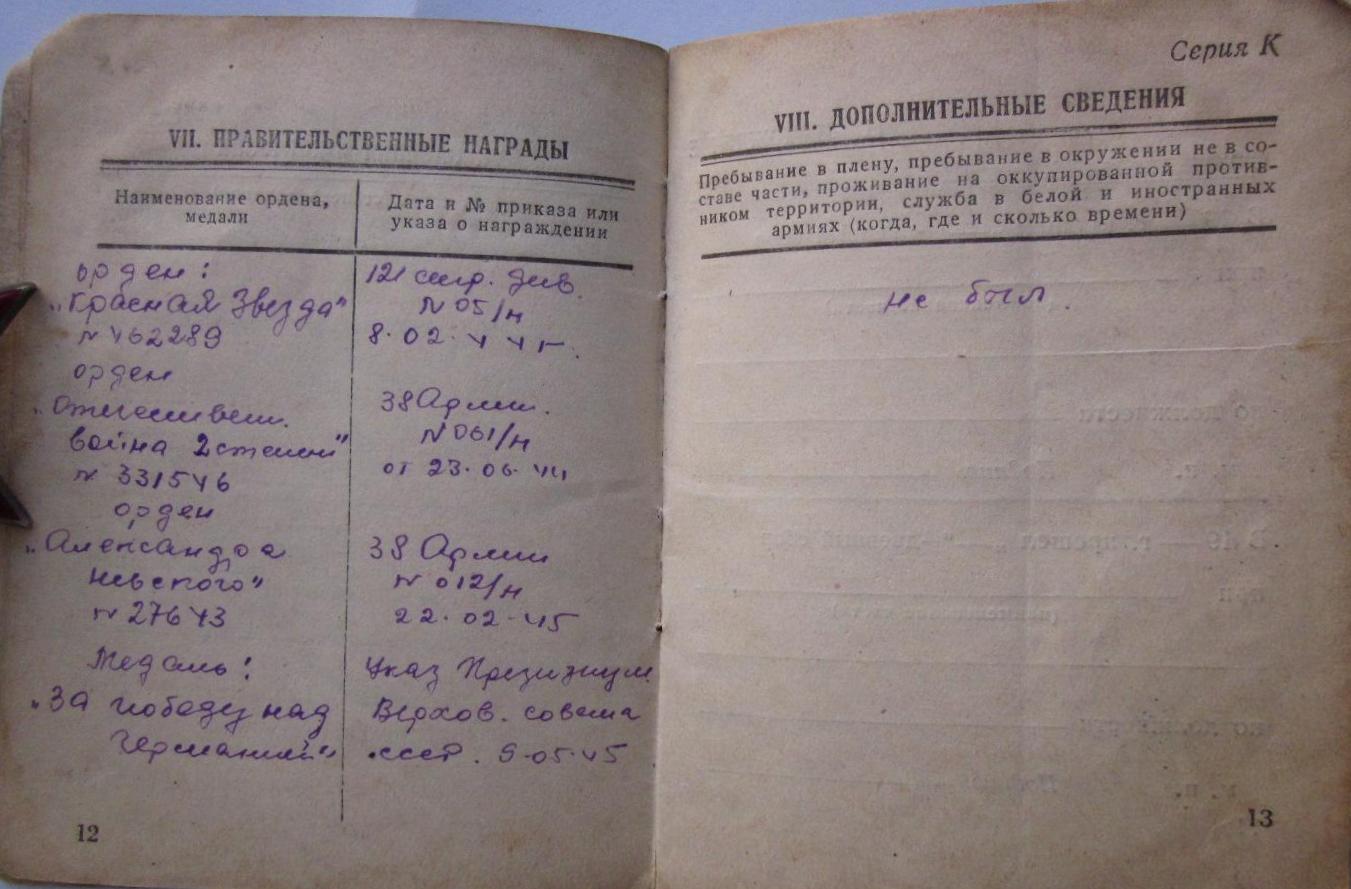 VII. ПРАВИТЕЛЬСТВЕННЫЕ НАГРАДЫ
Наименование ордена,
медали
Дата и № приказа или
указа о награждении
орден:
„Красная Звезда"
N 462289
121 стр. див.
N 05/н
8.02.44г.
орден
„Отечествен.
война 2степени"
N 331546
38 Армии.
N 061/н
от 23.06.44
орден
„Александра
Невского"
N 27643
38 Армии
N 012/н
22.02.45
Медаль:
„За победу над
Германией"
Указ Президиум
Верхов. совета
СССР. 9.05.45
12
Серия К
VIII. ДОПОЛНИТЕЛЬНЫЕ СВЕДЕНИЯ
Пребывание в плену, пребывание в окружении не в со-
ставе части, проживание на оккупированной против-
ником территории, служба в белой и иностранных
армиях (когда, где и сколько времени)
не был.
13